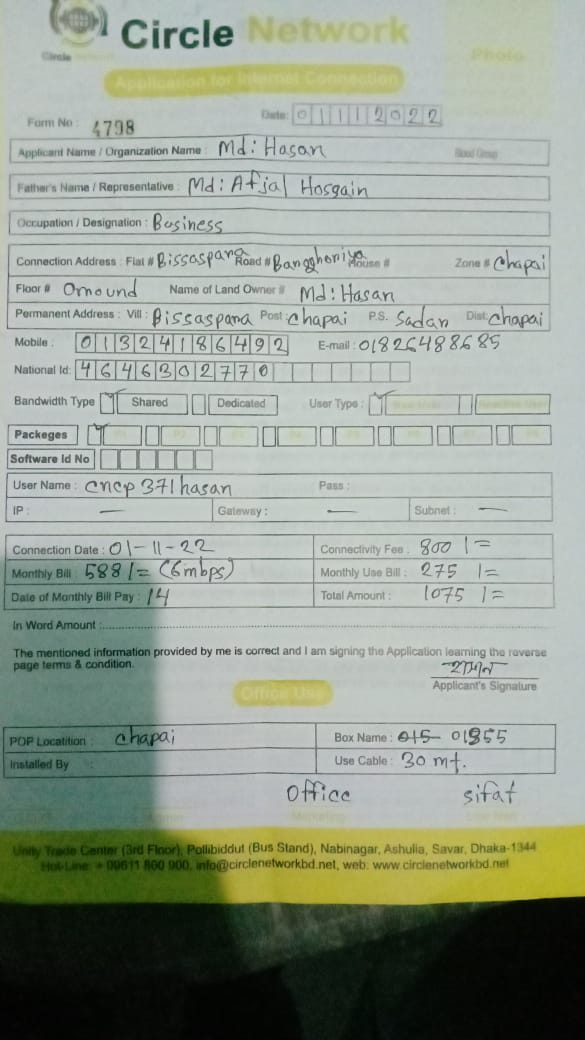 Circle Network
Circle
Photo
Application for Internet Connection
Form No : 4798
Date: 01112022
Applicant Name / Organization Name : Md: Hasan
Blood Group
Father's Name / Representative : Md: Afjal Hosgain
Occupation / Designation : Business
Connection Address : Flat # Bissaspara Road # Bangghoniya House # Zone # Chapai
Floor # Omound Name of Land Owner # Md: Hasan
Permanent Address : Vill : Bissaspana Post : Chapai P.S. Sadan Dist: Chapai
Mobile : 01324186492 E-mail : 01826488685
National Id: 4646302770
Bandwidth Type Shared Dedicated User Type :
Packeges
Software Id No
User Name : cncp371hasan Pass :
IP : — Gateway : — Subnet : —
Connection Date : 01-11-22 Connectivity Fee : 800/=
Monthly Bill : 588/= (6mbps) Monthly Use Bill : 275/=
Date of Monthly Bill Pay : 14 Total Amount : 1075/=
In Word Amount :
The mentioned information provided by me is correct and I am signing the Application learning the reverse
page terms & condition.
Applicant's Signature
Office Use
POP Locatition : Chapai Box Name : 015 01955
Installed By : Use Cable : 30 mt.
Office sifat
Marketing
Unity Trade Center (3rd Floor), Pollibiddut (Bus Stand), Nabinagar, Ashulia, Savar, Dhaka-1344
Hot-Line: + 09611 800 900, info@circlenetworkbd.net, web: www.circlenetworkbd.net